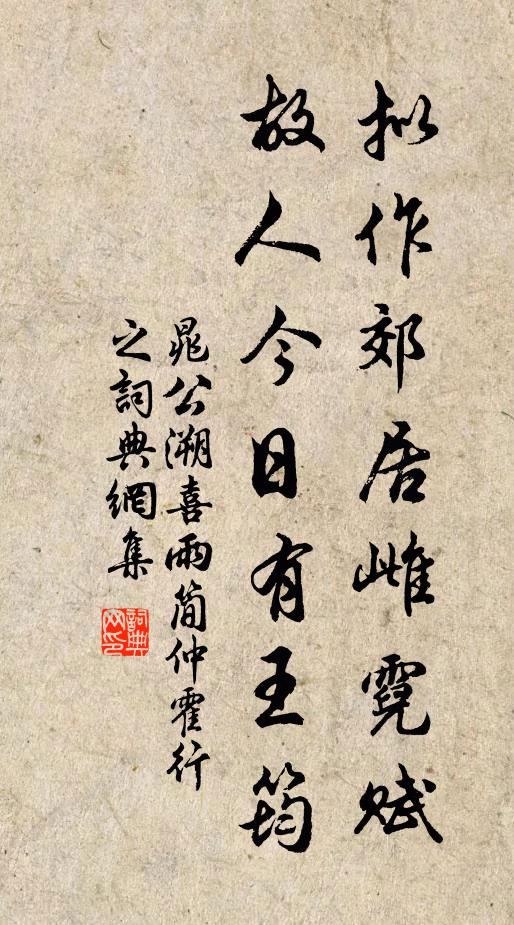 拟作郊居雌霓赋
故人今日有王筠
晁公溯喜雨简仲霍行
之詞典網集
詞典
网印